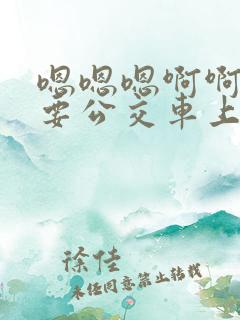 嗯嗯嗯啊啊
要公交車上
徐佳
未经同意禁止转载